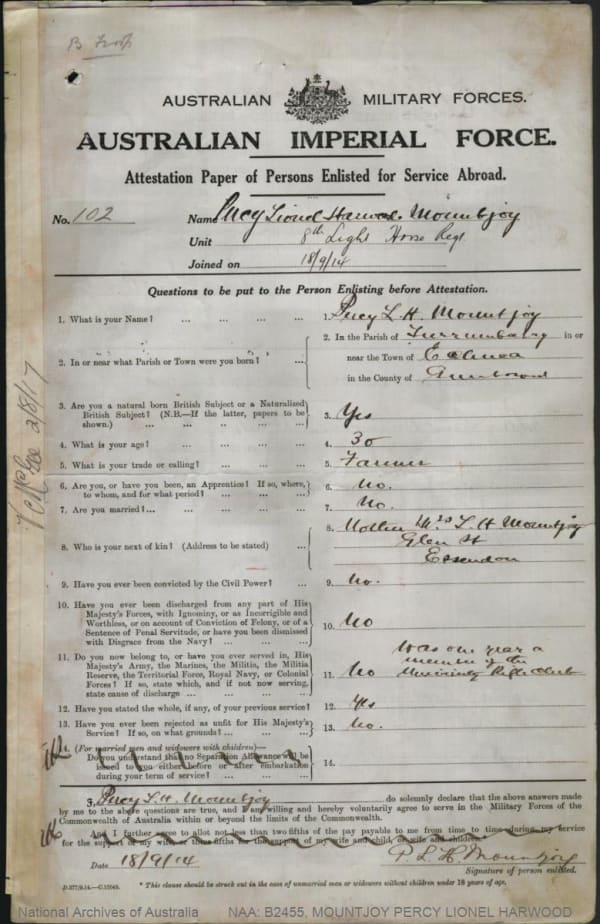 B Troop
AUSTRALIAN MILITARY FORCES.
AUSTRALIAN IMPERIAL FORCE.
Attestation Paper of Persons Enlisted for Service Abroad.
No. 102 Name Percy Lionel Harwood Mountjoy
Unit 8th Light Horse Regt
Joined on 18/9/14
Questions to be put to the Person Enlisting before Attestation.
1. What is your Name? ... ... ... ... 1. Percy L. H. Mountjoy
2. In or near what Parish or Town were you born? ... 2. In the Parish of Turrumberry in or
near the Town of Echuca
in the County of Gunbower
3. Are you a natural born British Subject or a Naturalized
British Subject? (N.B.—If the latter, papers to be
shown.) ... ... ... ... 3. Yes
4. What is your age? ... ... ... ... 4. 30
5. What is your trade or calling? ... ... ... 5. Farmer
6. Are you, or have you been, an Apprentice? If so, where,
to whom, and for what period? ... ... ... 6. No.
7. Are you married?... ... ... ... ... 7. No.
8. Who is your next of kin? (Address to be stated) ... 8. Mother Mrs L H Mountjoy
Glen St
Essendon
9. Have you ever been convicted by the Civil Power? ... 9. No.
10. Have you ever been discharged from any part of His
Majesty's Forces, with Ignominy, or as Incorrigible and
Worthless, or on account of Conviction of Felony, or of a
Sentence of Penal Servitude, or have you been dismissed
with Disgrace from the Navy? ... ... ... 10. No
11. Do you now belong to, or have you ever served in, His
Majesty's Army, the Marines, the Militia, the Militia
Reserve, the Territorial Force, Royal Navy, or Colonial
Forces? If so, state which, and if not now serving,
state cause of discharge ... ... ... ... 11. No
Was one year a
member of the
University Rifle Club
12. Have you stated the whole, if any, of your previous service? 12. Yes
13. Have you ever been rejected as unfit for His Majesty's
Service? If so, on what grounds? ... ... 13. No.
14. (For married men and widowers with children)—
Do you understand that no Separation Allowance will be
issued to you either before or after embarkation
during your term of service? ... ... ... 14.
I, Percy L. H. Mountjoy do solemnly declare that the above answers made
by me to the above questions are true, and I am willing and hereby voluntarily agree to serve in the Military Forces of the
Commonwealth of Australia within or beyond the limits of the Commonwealth.
And I further agree to allot not less than two fifths of the pay payable to me from time to time during my service
for the support of my wife and children.
Date 18/9/14 P. L. H. Mountjoy
Signature of person enlisted.
D.277/9.14.—C.12563.
* This clause should be struck out in the case of unmarried men or widowers without children under 18 years of age.
2/8/17
National Archives of Australia NAA: B2455, MOUNTJOY PERCY LIONEL HARWOOD